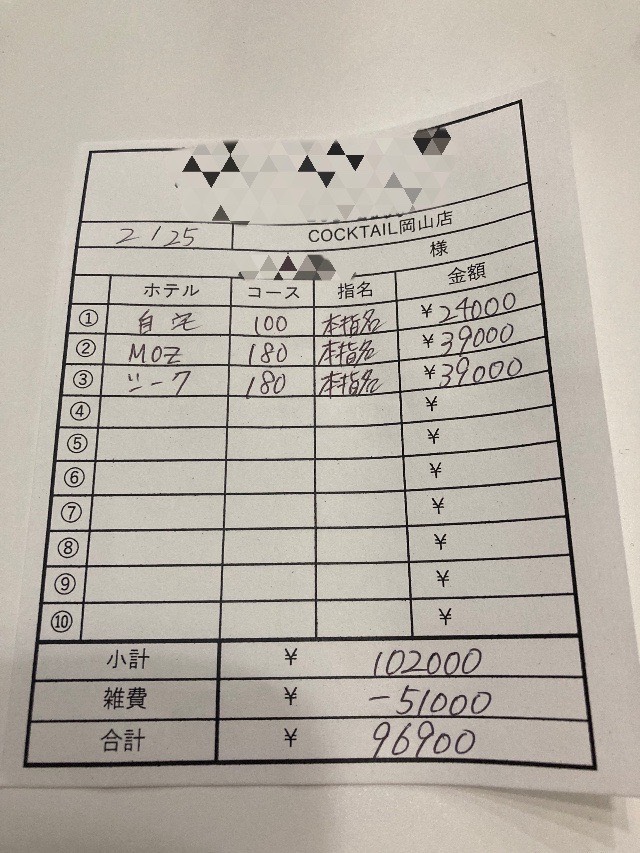 2/25 COCKTAIL岡山店
様
ホテル コース 指名 金額
① 自宅 100 本指名 ¥24000
② MOZ 180 本指名 ¥39000
③ シーク 180 本指名 ¥39000
④ ¥
⑤ ¥
⑥ ¥
⑦ ¥
⑧ ¥
⑨ ¥
⑩ ¥
小計 ¥ 102000
雑費 ¥ -51000
合計 ¥ 96900